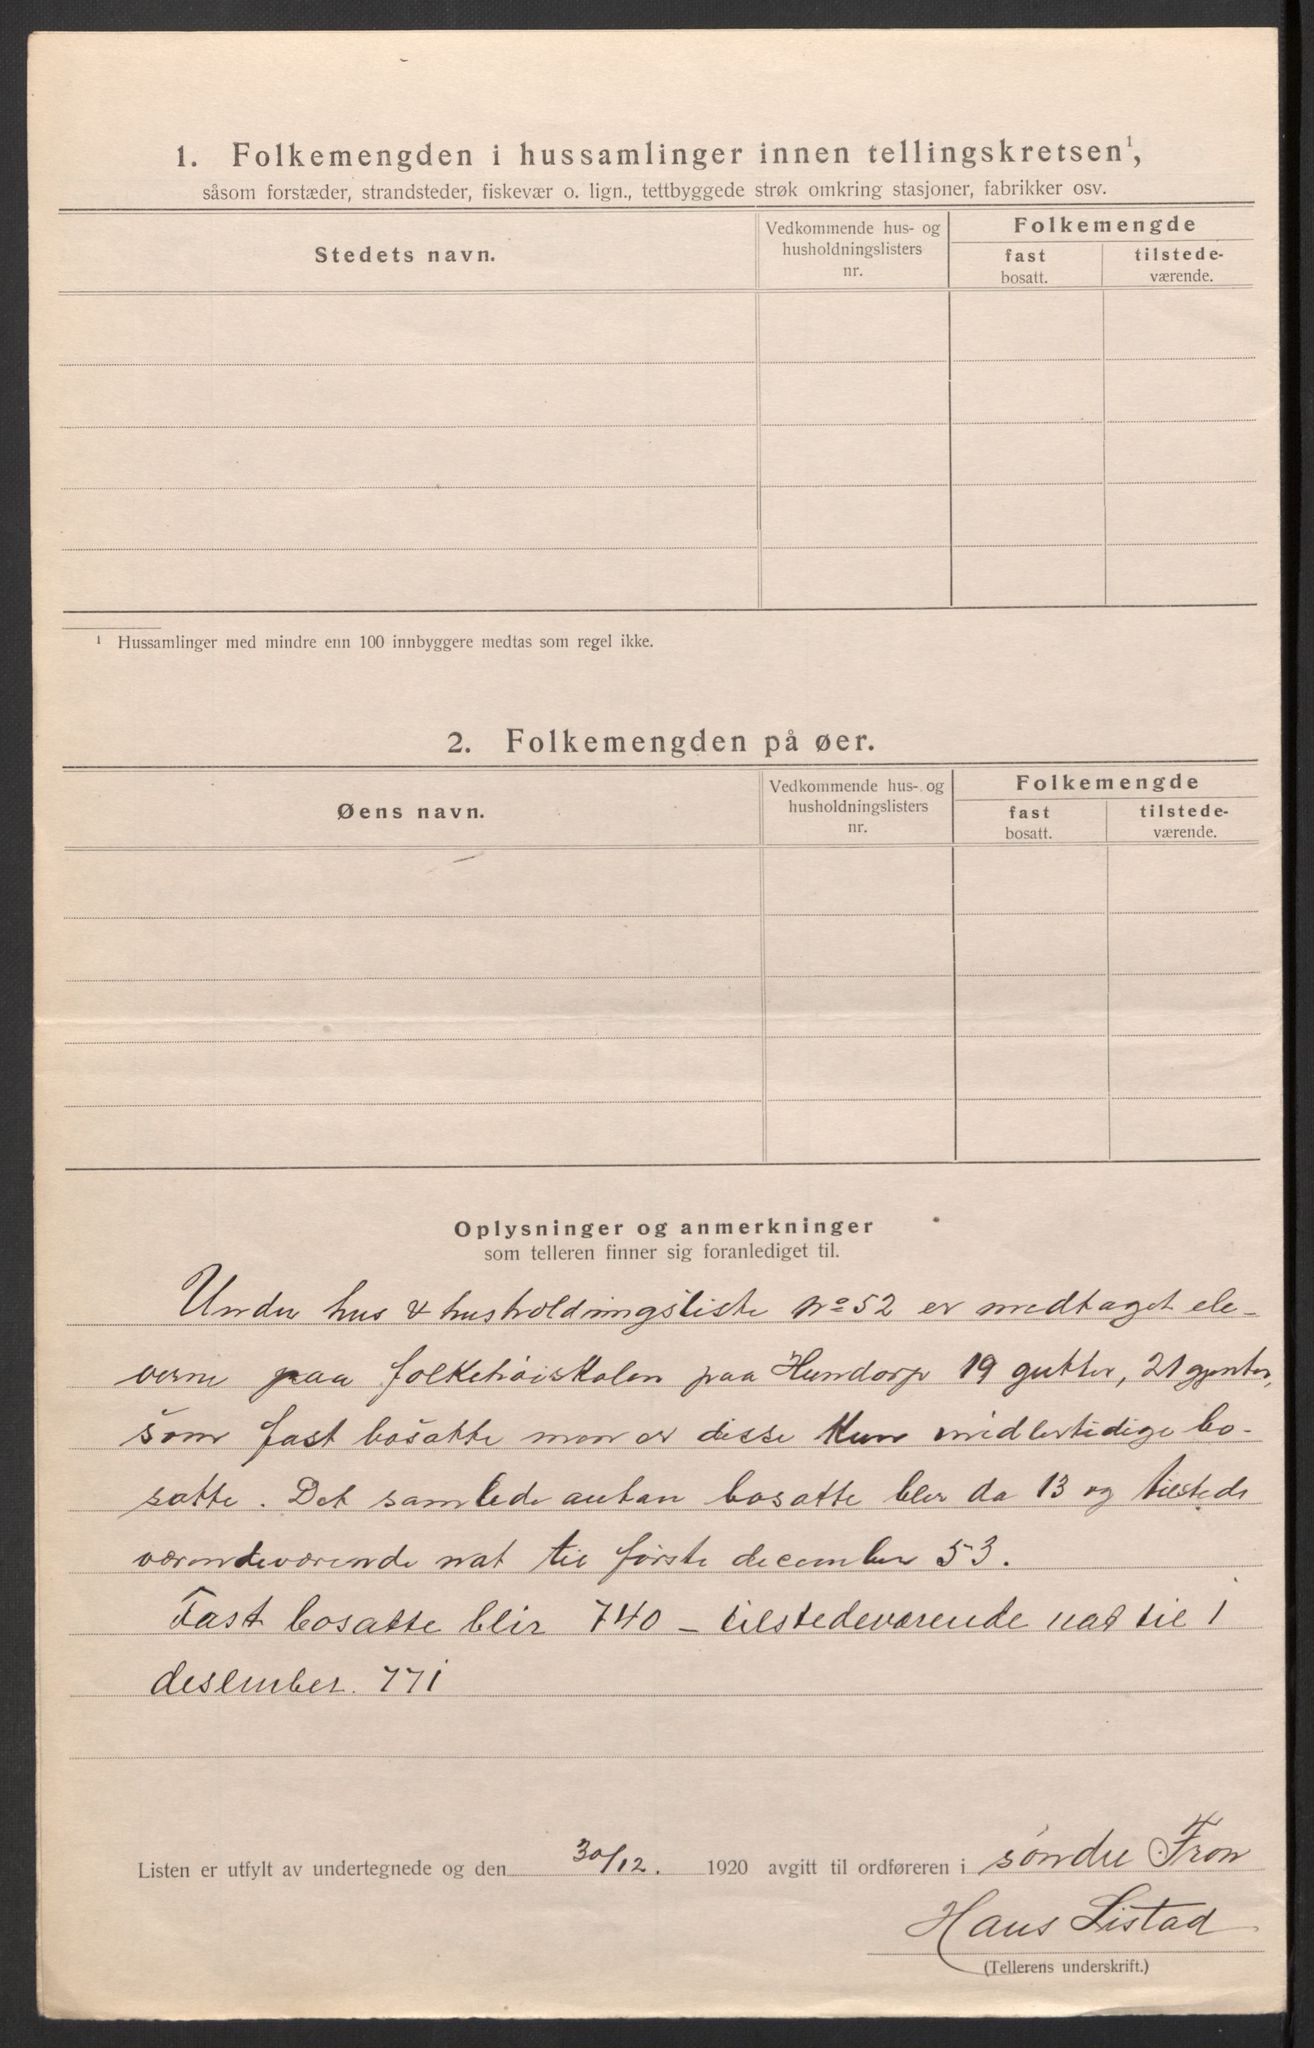 1. Folkemengden i hussamlinger innen tellingskretsen¹,
såsom forstæder, strandsteder, fiskevær o. lign., tettbyggede strøk omkring stasjoner, fabrikker osv.
Stedets navn.
Vedkommende hus- og
husholdningslisters
nr.
Folkemengde
fast
bosatt.
tilstede-
værende.
¹ Hussamlinger med mindre enn 100 innbyggere medtas som regel ikke.
2. Folkemengden på øer.
Øens navn.
Vedkommende hus- og
husholdningslisters
nr.
Folkemengde
fast
bosatt.
tilstede-
værende.
Oplysninger og anmerkninger
som telleren finner sig foranlediget til.
Under hus & husholdningsliste No 52 er medtaget ele-
verne paa folkehøiskolen paa Hundorp 19 gutter, 21 gjenter,
som fast bosatte men er disse kun midlertidige bo-
satte. Det samlede antan bosatte blir da 13 og tilstede
værendeværende nat til første december 53.
Fast bosatte blir 740 – tilstedeværende nat til 1
desember. 771
Listen er utfylt av undertegnede og den 30/12. 1920 avgitt til ordføreren i søndre Fron
Hans Listad
(Tellerens underskrift.)